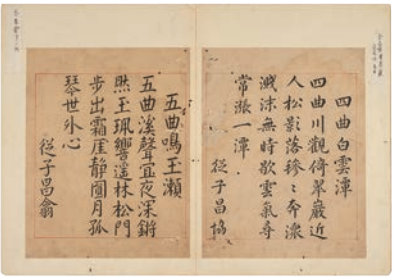 四曲白雲潭
四曲川觀倚翠巖近
人松影落毿〻奔潨
濺沫無時歇雲氣尋
常漲一潭
從子昌協
五曲鳴玉瀨
五曲溪聲宜夜深鏘
然玉珮響遥林松門
步出霜崖静圓月孤
琴世外心
從子昌翕